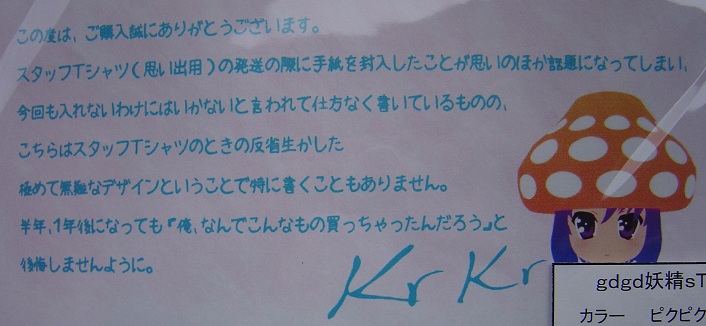 この度は、ご購入誠にありがとうございます。
スタッフTシャツ(思い出用)の発送の際に手紙を封入したことが思いのほか話題になってしまい、
今回も入れないわけにはいかないと言われて仕方なく書いているものの、
こちらはスタッフTシャツのときの反省生かした
極めて無難なデザインということで特に書くこともありません。
半年、1年後になっても『俺、なんでこんなもの買っちゃったんだろう』と
後悔しませんように。
Kr Kr
gdgd妖精sT
カラー ピクピク